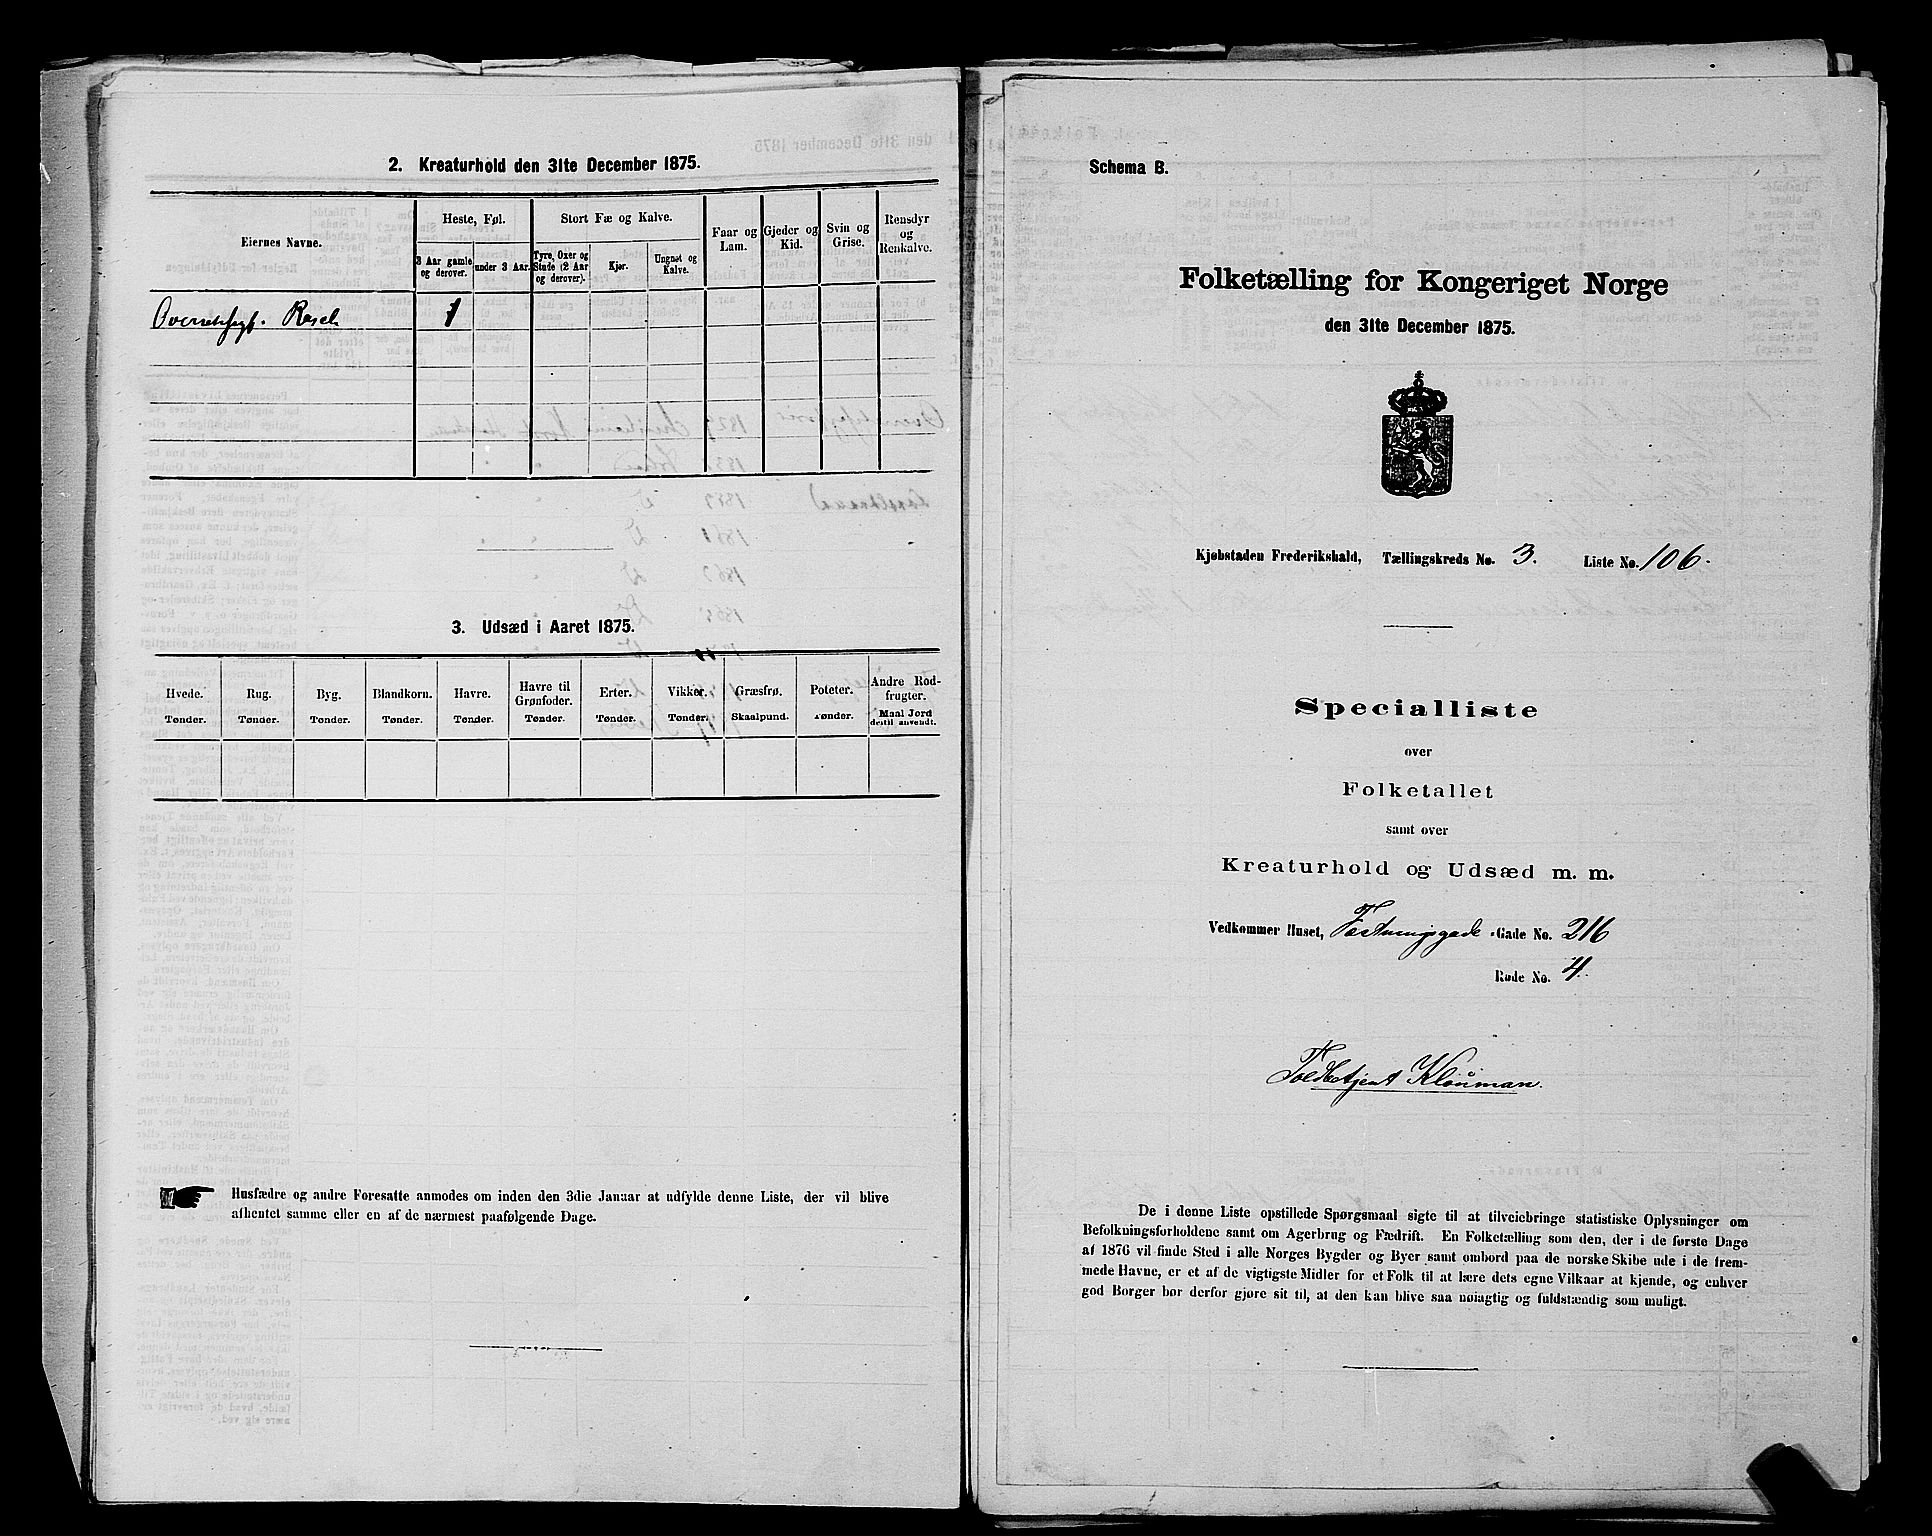 2. Kreaturhold den 31te December 1875.
Eiernes Navne.
Heste, Føl.
3 Aar gamle og derover.
under 3 Aar.
Stort Fæ og Kalve.
Tyre, Oxer og Stude (2 Aar og derover).
Kjør.
Ungnøt og Kalve.
Faar og Lam.
Gjeder og Kid.
Svin og Grise.
Rensdyr og Renkalve.
Overretssagf. Rasch 1
3. Udsæd i Aaret 1875.
Hvede. Tønder.
Rug. Tønder.
Byg. Tønder.
Blandkorn. Tønder.
Havre. Tønder.
Havre til Grønfoder. Tønder.
Erter. Tønder.
Vikker. Tønder.
Græsfrø. Skaalpund.
Poteter. Tønder.
Andre Rodfrugter. Maal Jord dertil anvendt.
Husfædre og andre Foresatte anmodes om inden den 3die Januar at udfylde denne Liste, der vil blive
afhentet samme eller en af de nærmest paafølgende Dage.
Schema B.
Folketælling for Kongeriget Norge
den 31te December 1875.
Kjøbstaden Frederikshald, Tællingskreds No. 3. Liste No. 106.
Specialliste
over
Folketallet
samt over
Kreaturhold og Udsæd m. m.
Vedkommer Huset, Fæstningsgade Gade No. 216
Rode No. 4.
Toldbetjent Klouman.
De i denne Liste opstillede Spørgsmaal sigte til at tilveiebringe statistiske Oplysninger om
Befolkningsforholdene samt om Agerbrug og Fædrift. En Folketælling som den, der i de første Dage
af 1876 vil finde Sted i alle Norges Bygder og Byer samt ombord paa de norske Skibe ude i de frem-
mede Havne, er et af de vigtigste Midler for et Folk til at lære dets egne Vilkaar at kjende, og enhver
god Borger bør derfor gjøre sit til, at den kan blive saa nøiagtig og fuldstændig som muligt.